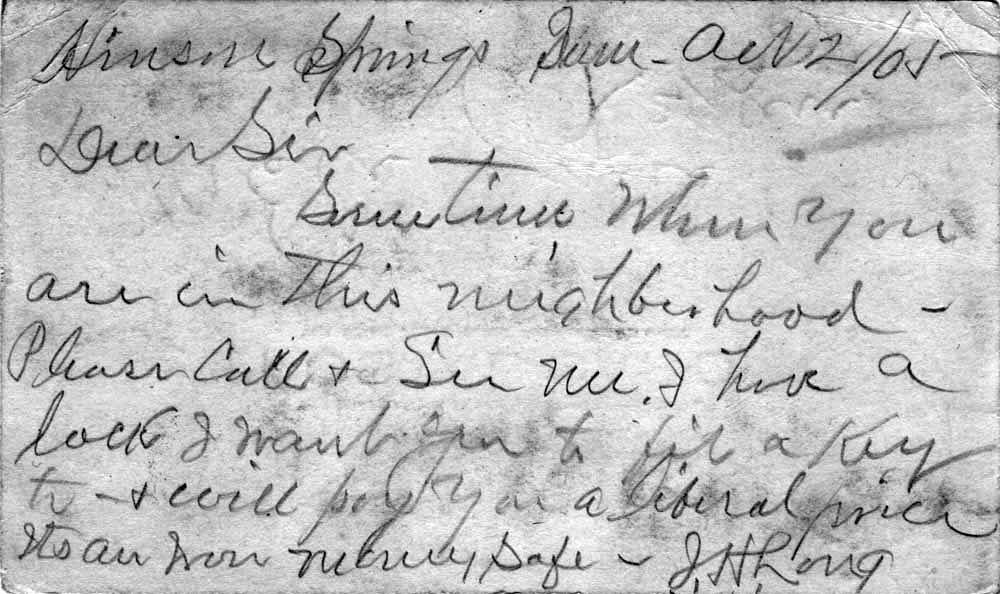 Hinson Springs Tenn - Oct 2/05 -
Dear Sir
Sometime When You
are in This neighborhood -
Please Call + See me. I have a
lock I want you to fit a Key
to - + will pay You a liberal price
Its an Iron money Safe - J. H. Long